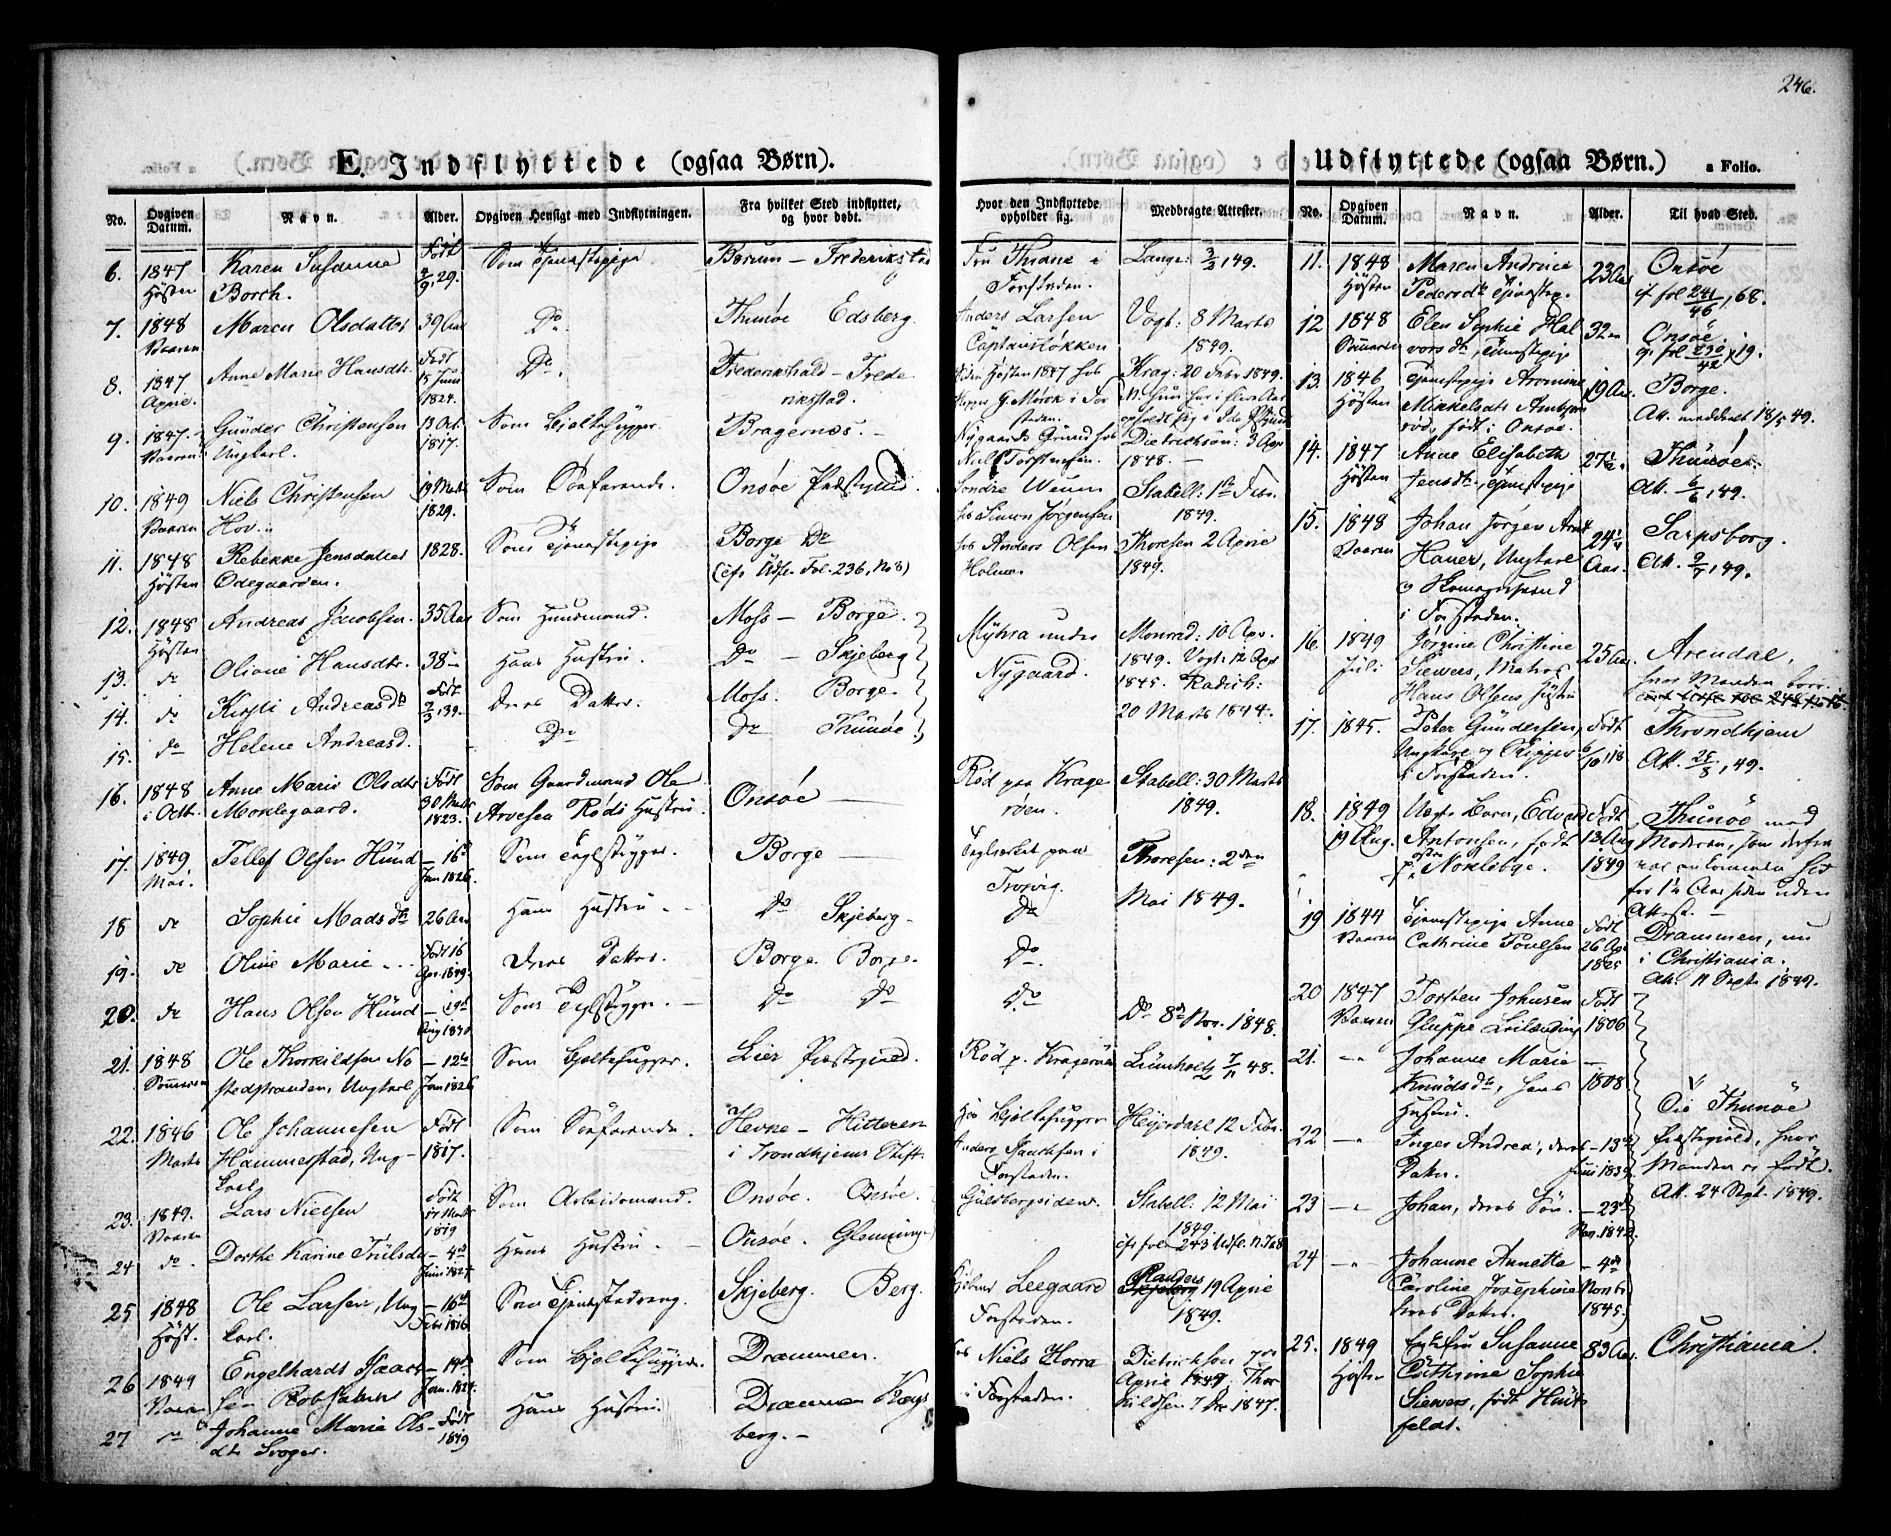 246.
E. Indflyttede (ogsaa Børn).
No. Opgiven Datum. Navn. Alder. Opgiven Hensigt med Indflytningen. Fra hvilket Sted indflyttet, og hvor døbt. Hvor den Indflyttede opholder sig. Medbragte Attester.
6. 1847 Høsten Karen Susanne Borch. Født 2/9 29. Som Tjenestepige Bærum — Frederikstad Fru Thrane i Forstaden. Lange: 3/3, 49.
7. 1848 Vaaren Maren Olsdatter 39 Aar Do. Thunøe Edsberg. Anders Larsen Captainsløkken Vogt: 8 Marts 1849.
8. 1847 April. Anne Marie Hansdtr. Født 15 Juni 1824. Do. Frederikshald — Frederiksstad. Siden Høsten 1847 hos G. Mørck i Forstaden. Krag: 20 Febr 1849.
9. 1847. Vaaren Gunder Christensen Ungkarl. 13 Oct. 1817. Som Hjeltehugger. Bragernæs. — Nygaards Grund hos Niels Torstensen. Dietrichson: 3 Apr 1848. —
10. 1849 Vaaren Niels Christensen Hov. 19 Marts 1829. Som Søefarende. Onsøe Præstegield. Søndre Weum hos Simon Jørgensen Stabell: 16 Febr. 1849.
11. 1848 Høsten Rebekke Jensdatter Ødegaarden. 1828. Som Tjenestepige Borge Do (cfr Udfl. Fol. 236, No 8) hos Anders Olsen Holmen Thoresen 2 April 1849.
12. 1848 Høsten Andreas Jacobsen. 35 Aar Som Huusmand. Moss — Borge. Myhra under Nygaard. Monrad: 10 Apr. 1849. Vogt: 12 Apr 1845. 20 Marts 1844.
13. do Oliane Hansdtr. 38 — Hans Hustru. Do — Skjeberg
14. do Kirsti Andreasdtr Født 2/3, 39. Deres Datter. Moss. Borge.
15. do Helene Andreasd. Do Do Thunøe
16. 1848 i Octbr. Anne Marie Olsdtr Moklegaard. Født 30 Marts 1823. Som Gaardmand Ole Arvesen Røds Hustru. Onsøe — Rød paa Kragerøen. Stabell: 30 Marts 1849.
17. 1849 Mai. Tellef Olsen Hund — 16de Jan 1826. Som Teglstryger. Borge — Teglværket paa Trosvig. Thoresen: 2den Mai 1849.
18 do Sophie Madsdtr 26 Aar Hans Hustru. — Do Skjeberg — Do
19. do Oline Marie Født 16 Apr. 1849. Deres Datter. Borge. Borge. Do.
20. do Hans Olsen Hund Som Teglstryger. — Do Do Do Do 8de Nov. 1848.
21. 1848 Sommeren Ole Thorkildsen Nostedstranden, Ungkarl — 12te Jan 1826 Som Hjeltehugger. Lier Præstegield. Rød p. Kragerøen Lumholtz 7/11 48.
22. 1846 Marts Ole Johannesen Hammerstad, Ungkarl. Født 1817. Som Søefarende. Hevne — Hitteren i Trondhjems Stift. Hos Hjeltehugger Anders i Forstaden. Heyerdahl 12 Febr. 1849.
23. 1849. Vaaren Lars Nielsen Født 17 Marts 1819 Som Arbeidsmand. Onsøe. Onsøe. Guldbergsiden. Stabell: 12 Mai 1849. cfr fol. 243 Udfl. N. 7&8
24 do. Dorthe Karine Trulsdtr — 4de Juni 1827 Hans Hustru. — Onsøe. Glemminge
25 1848 Høst. Ole Larsen, Ungkarl. — 16de Febr 1816 Som Tjenestedreng. Skjeberg. Berg. Leegaard Forstaden. Randers 19 April 1849.
26 1849 Vaaren Engelhardt Isaachsen Robsahm — 14de Jan. 1824. Som Hjeltehugger. Drammen. hos Niels Horra i Forstaden. Dietrichson 7de April 1849. Thorkildsen 7 Dec 1847.
27 do Johanne Marie Olsdtr Svager. Født 1819 Hans Hustru Drammen Kongsberg. —
Udflyttede (ogsaa Børn.) a Folio.
No. Opgiven Datum. Navn. Alder. Til hvad Sted.
11. 1848 Høsten Maren Andrine Pedersdtr Tjenestep. 23 Aar Onsøe cf fol 241/46, 68.
12 1848 Sommeren Elen Sophie Halvorsdtr, Tjenestepige 32 Onsøe. fol 230/42, 19.
13. 1846 Høsten Tjenestepige Aromine Mikkelsdtr, født i Onsøe. 19 Aar. Borge. Att. meddeelt 18/5 49.
14. 1847 Høsten Anne Elisabeth Jensdtr, Tjenestepige 27½ Thunøe. Att. 6/6, 49.
15. 1848 Vaaren Johan Jørgen Arndt Hauer, Ungkarl og Skomagersvend i Forstaden. 24¼ Aar. Sarpsborg. Att. 2/7, 49.
16. 1849 Juli. Jørgine Christine Siewers, Matros Hans Olsens Hustru 25 Aar. Arendal, hvor Manden boer.
17. 1845. Peter Gundersen, Ungkarl og Skipper i Forstaden. Født 6/10 18 Throndhjem Att. 25/3, 49.
18. 1849 19 Aug. Uægte Barn, Edvard Antonsen, født p. Noklebye. Født 13 Aug 1849 Thunøe med Moderen, som derfra var ankommen hid for 1½ Aar siden uden Attest. —
19 1844 Vaaren Tjenestepige Anne Cathrine Poulsen Født 26 Apr 1825 Drammen, nu i Christiania. Att. 11 Sept. 1849.
20 1847 Vaaren Torsten Johnsen Født 1806
21. — " Johanne Marie Knudsdtr, hans Hustru. — 1808
22 — " Inger Andrea, deres Datter. — 13de Juni 1839
23 — " Johan, deres Søn. — 23de Nov. 1842
24 — " Johanne Annette Caroline Josephine deres Datter. — 4de Novbr 1845.
Thunøe Præstegield, hvor Manden er født. Att. 24 Sept. 1849.
25. 1849 Høsten Enkefru Susanne Cathrine Sophie Siewers, født Huitfeldt. 83 Aar. Christiania.